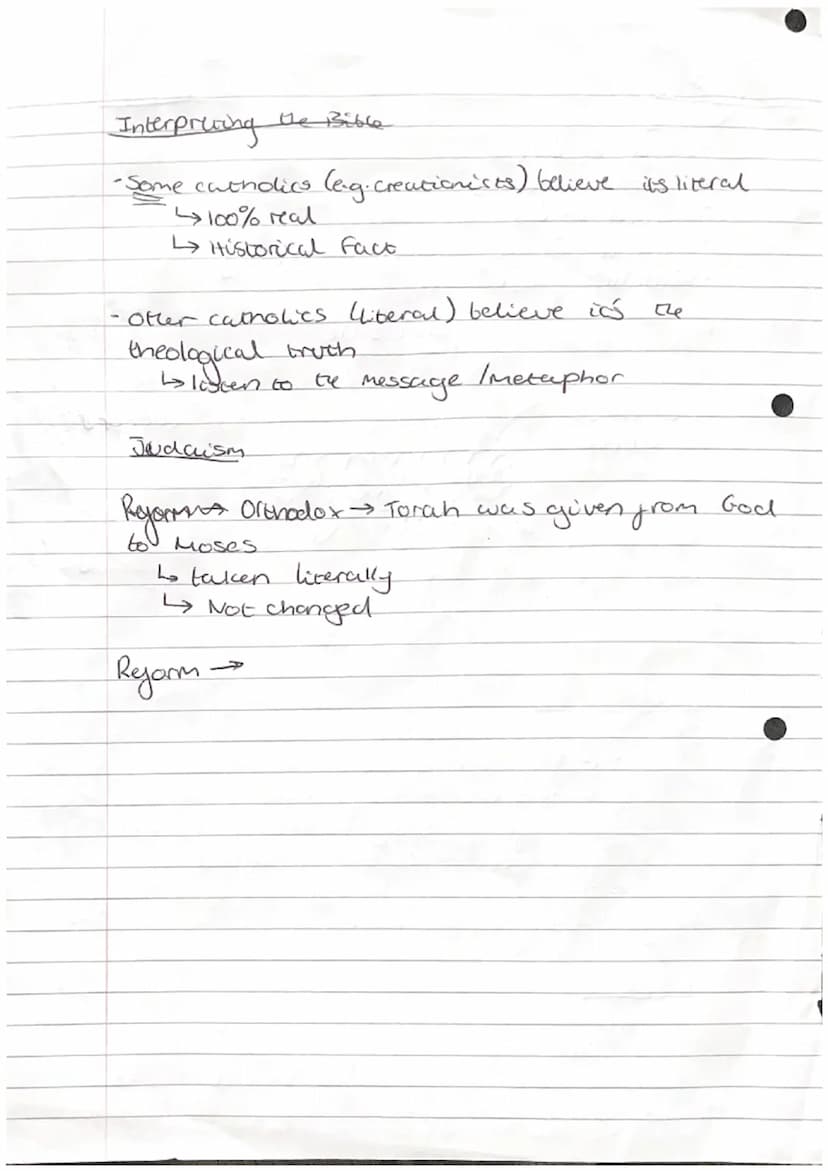 Interpreting the Bible
- Some catholics (e.g. creationists) believe its literal
↳ 100% real
↳ Historical fact
- Other catholics (literal) believe it's the
theological truth
↳ listen to the message / metaphor
Judaism
Reform → Orthodox → Torah was given from God
to Moses
↳ taken literally
↳ Not changed
Reform →